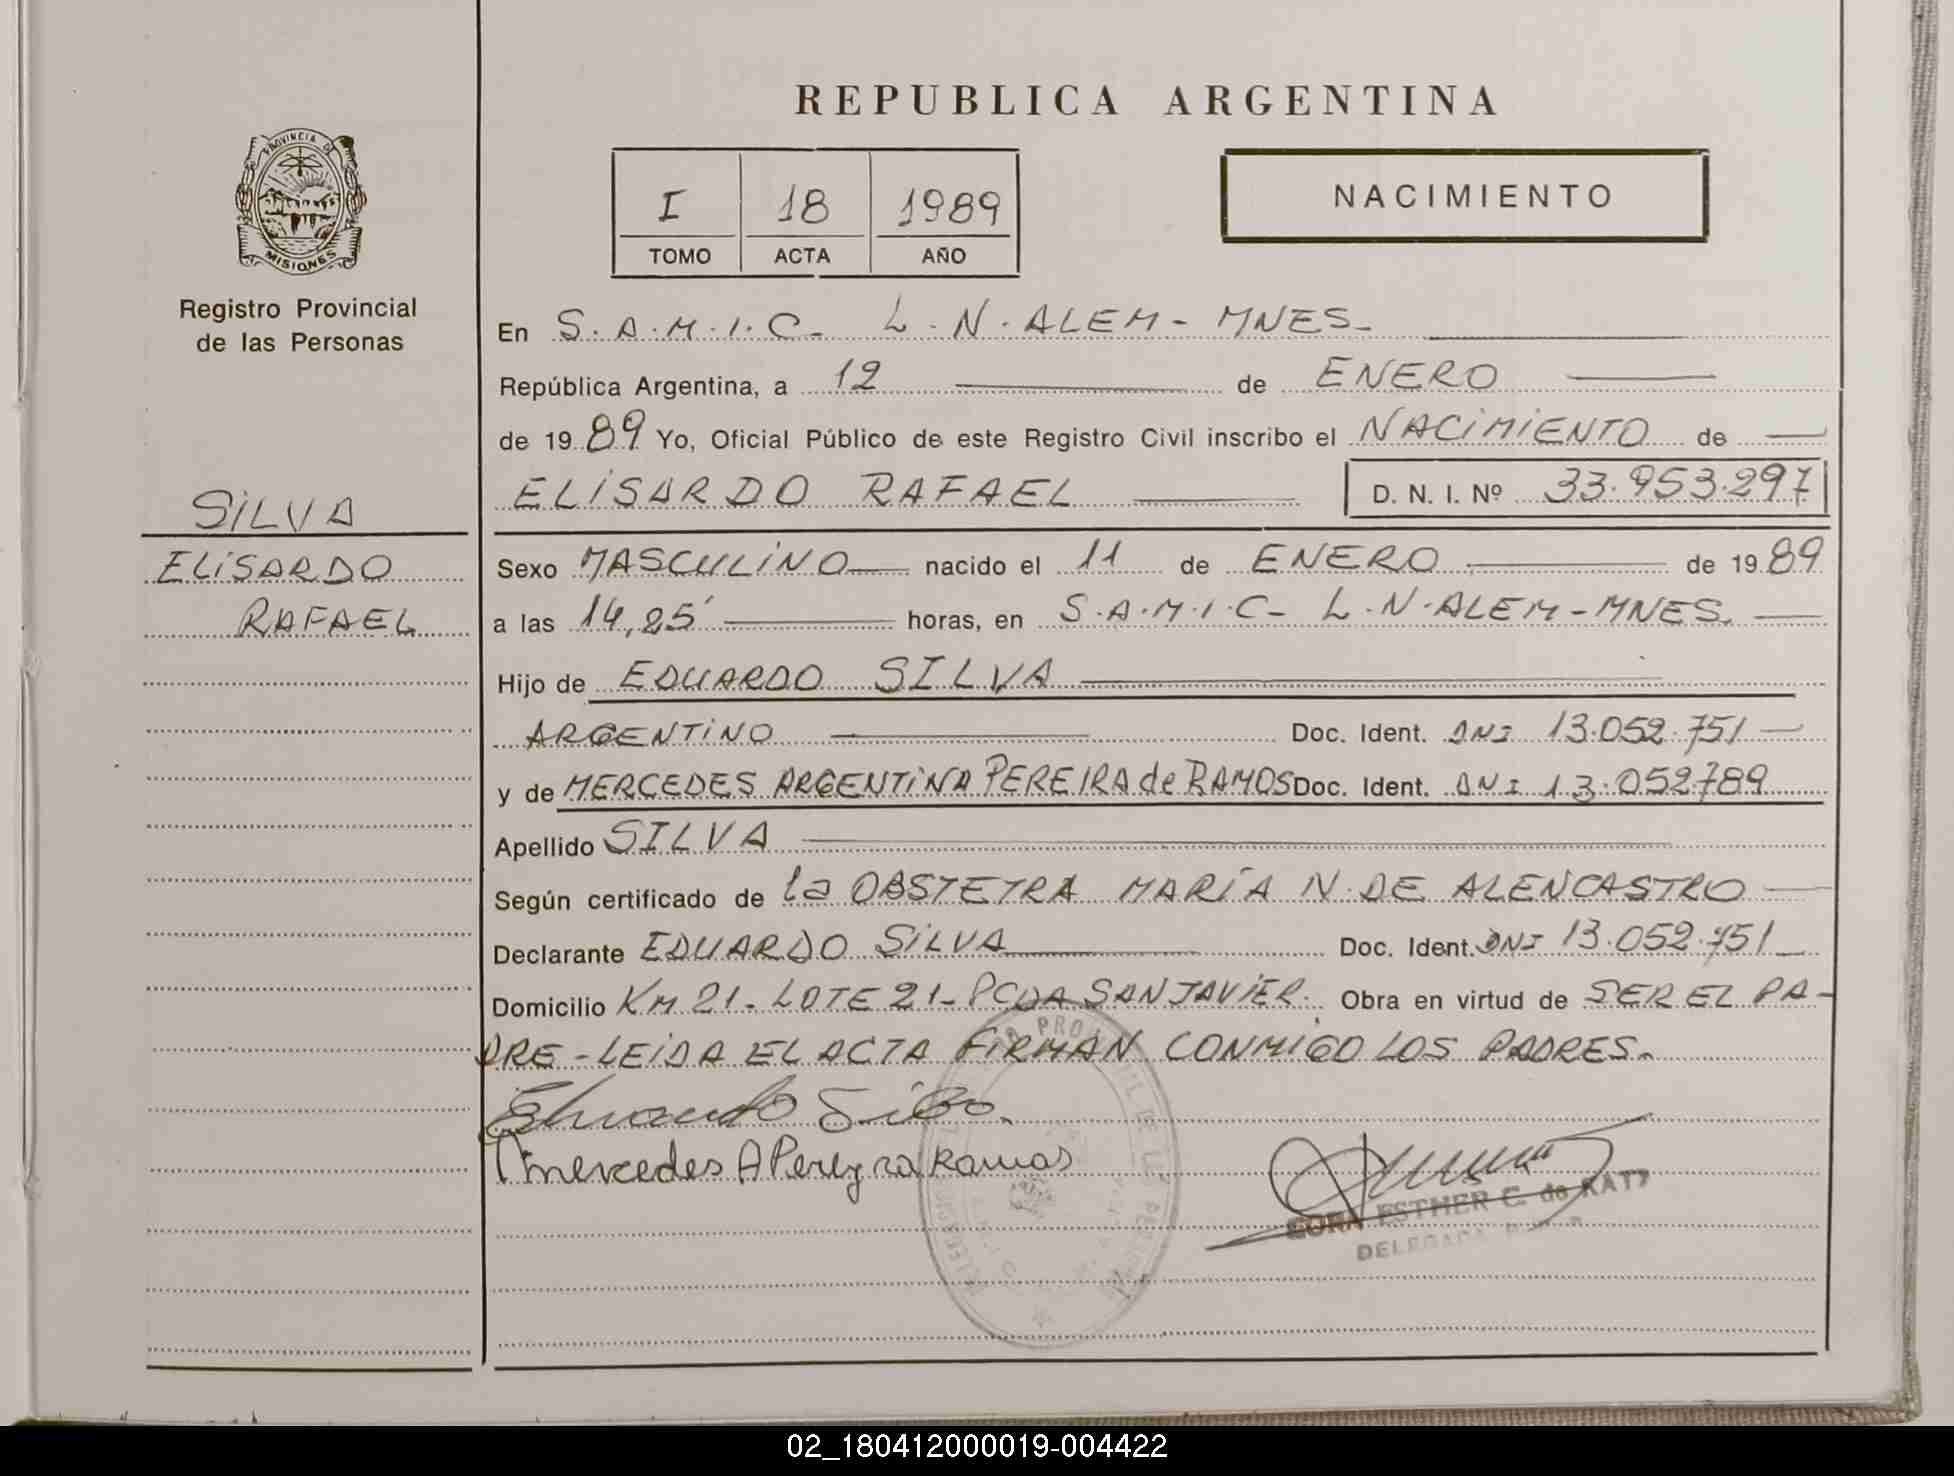 REPUBLICA ARGENTINA
PROVINCIA DE
MISIONES
Registro Provincial
de las Personas
I 18 1989
TOMO ACTA AÑO
NACIMIENTO
En S.A.M.I.C- L.N.ALEM- MNES-
República Argentina, a 12 de ENERO
de 1989 Yo, Oficial Público de este Registro Civil inscribo el NACIMIENTO de
ELISARDO RAFAEL D. N. I. Nº 33.953.297
SILVA
ELISARDO
RAFAEL
Sexo MASCULINO nacido el 11 de ENERO de 1989
a las 14,25' horas, en S.A.M.I.C- L.N.ALEM-MNES.
Hijo de EDUARDO SILVA
ARGENTINO Doc. Ident. DNI 13.052.751
y de MERCEDES ARGENTINA PEREIRA de RAMOS Doc. Ident. DNI 13.052789
Apellido SILVA
Según certificado de la OBSTETRA MARÍA N. DE ALENCASTRO
Declarante EDUARDO SILVA Doc. Ident. DNI 13.052.751
Domicilio KM 21- LOTE 21- PCDA SAN JAVIER. Obra en virtud de SER EL PA-
DRE-LEIDA EL ACTA FIRMAN CONMIGO LOS PADRES.
Eduardo Silva.
Mercedes A Pereyra Ramos
ESTHER C. de KATZ
DELEGADA
02_180412000019-004422